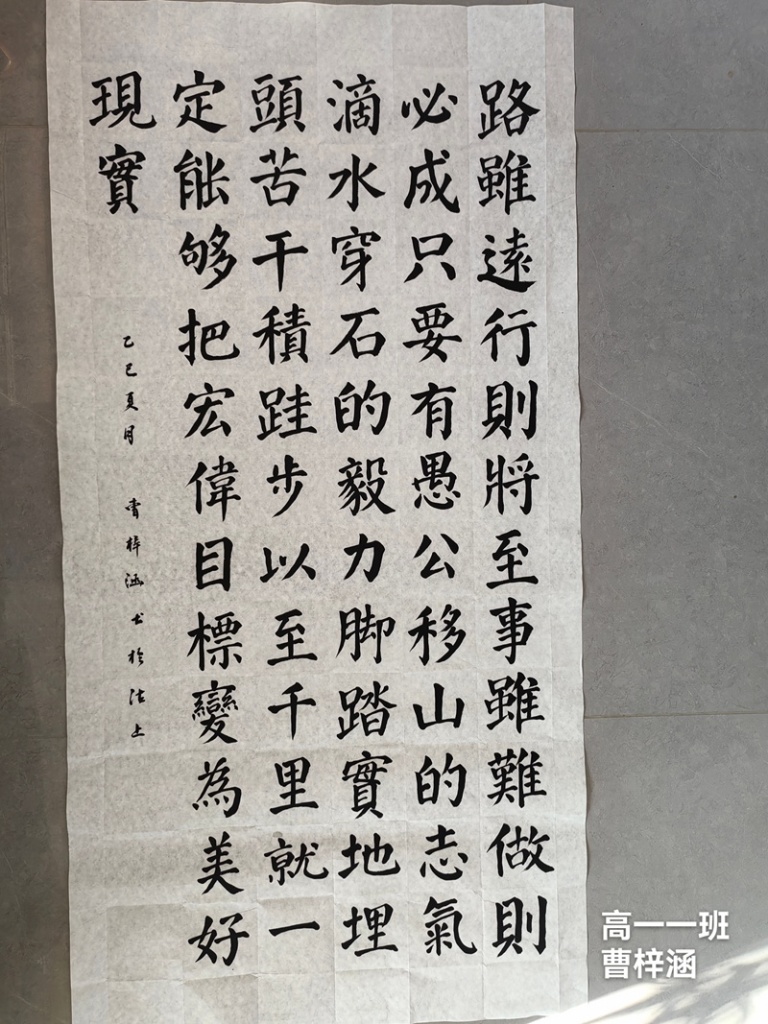 路雖遠行則將至事雖難做則
必成只要有愚公移山的志氣
滴水穿石的毅力脚踏實地埋
頭苦干積跬步以至千里就一
定能够把宏偉目標變為美好
現實
乙巳夏月 曹梓涵书於法上
高一一班
曹梓涵